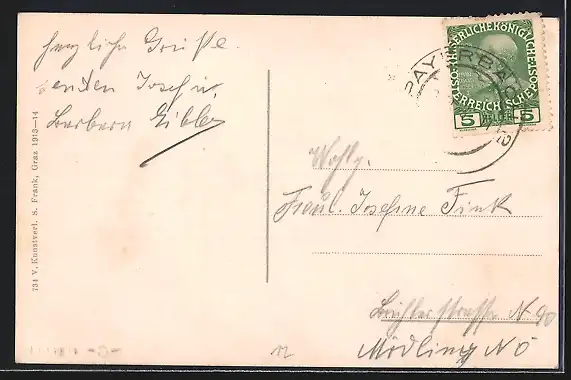 herzliche Grüße
senden Josef u.
Barbara
734 V. Kunstverl. S. Frank, Graz 1913—14
PAYERBACH
KAISERLICHEKÖNIGLICHE
ÖSTERREICHISCHE POST
5 HELLER 5
Wohlg.
Fräul. Josefine Fink
N 90
Mödling NÖ
12